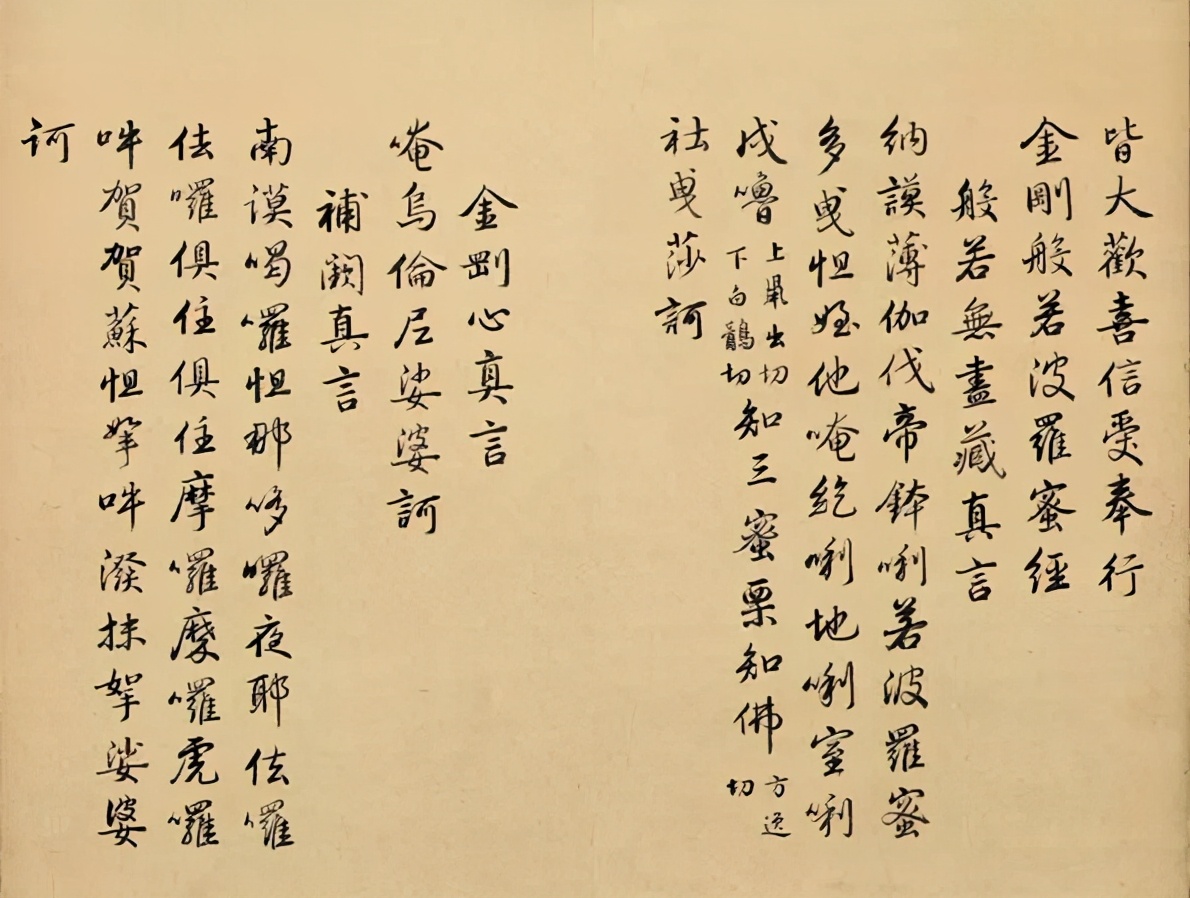 皆大歡喜信受奉行
金剛般若波羅蜜經
般若無盡藏真言
納謨薄伽伐帝鉢唎若波羅蜜
多曳怛姪他唵紇唎地唎室唎
戍嚕上鼠出切下白鶻切知三蜜栗知佛方逸切
社曳莎訶
金剛心真言
唵烏倫尼娑婆訶
補闕真言
南謨喝囉怛那哆囉夜耶佉囉
佉囉俱住俱住摩囉摩囉虎囉
吽賀賀蘇怛拏吽潑抹拏娑婆
訶